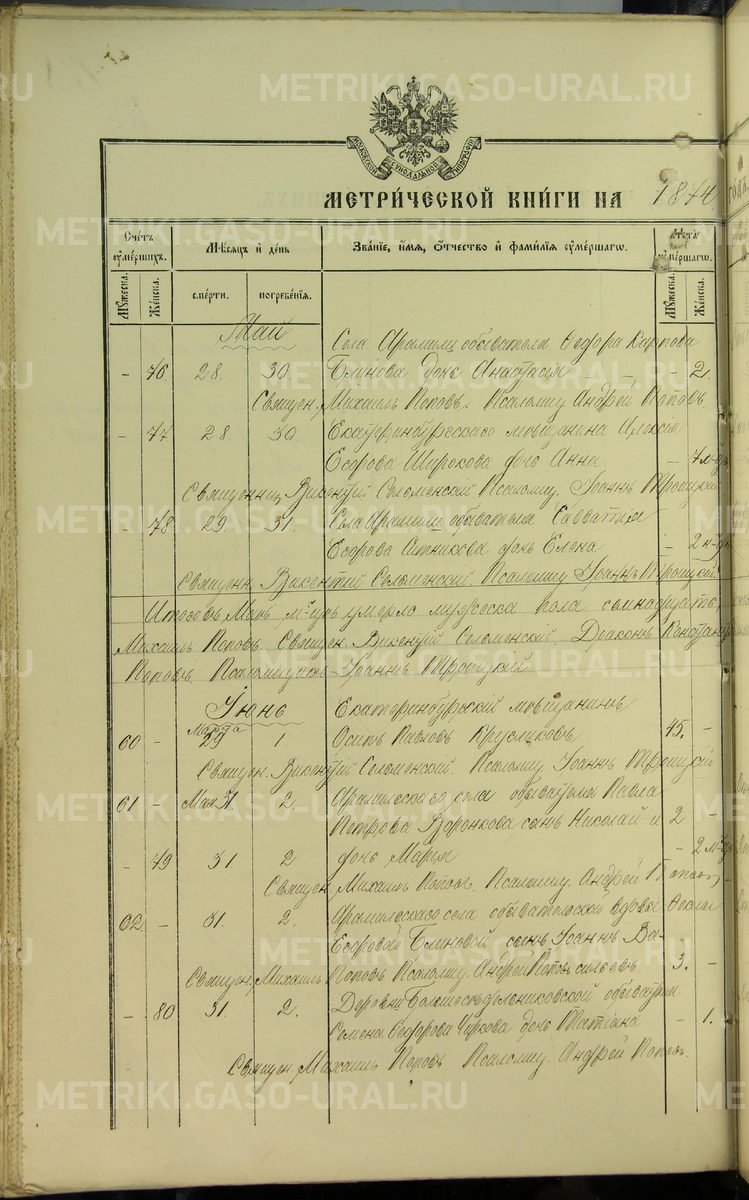 МЕТРИ́ЧЕСКОЙ КНИ́ГИ НА 1874
Счетъ ᲂу҆мершихъ. Мѣсяцъ и҆ день Зва́нїе, и҆́мя, ѻ҆́тчество и҆ фами́лїя ᲂу҆ме́ршагѡ. Лѣта ᲂу҆ме́ршагѡ.
Мꙋжеска. Же́нска. сме́рти. погребе́нїѧ. Мꙋжеска. Же́нска.
Май
Села Арамили обывателя Ѳедора Карпова
- 76 28. 30. Блинова дочь Анастасія - - 2.
Священ. Михаилъ Поповъ. Псаломщ. Андрей Поповъ.
- 77 28. 30. Екатеринбургскаго мѣщанина Алексѣя
Егорова Широкова дочь Анна - 7 м-цѣ
Священник Викентій Соломенский Псаломщ. Іоаннъ Троицкій
- 78 29. 31. Села Арамили обывателя Савватія
Егорова Ситникова дочь Елена - 2 н-дѣ
Священн. Викентій Соломенский Псаломщ. Іоаннъ Троицкій.
Итого въ Маѣ м-цѣ умерло мужеска пола семнадцать,
Михаилъ Поповъ Священ. Викентій Соломенскій. Діаконъ
Поповъ Псаломщикъ Іоаннъ Троицкій
Іюнь Екатеринбургскій мѣщанинъ
60 - 29 1. Осипъ Павловъ Кругликовъ 45. -
Священ. Викентій Соломенский. Псаломщ. Іоаннъ Троицкій
61 - Мая 31. 2. Арамильскаго села обывателя Павла
Петрова Воронкова сынъ Николай и 2 -
- 79 31. 2 дочь Марья - 2 м-цѣ
Священ. Михаилъ Поповъ. Псаломщ. Андрей Поповъ
62. - 31. 2. Арамильскаго села обывательской вдовы
Егоровой Блиновой сынъ Іоаннъ Ва-
Священ. Михаилъ Поповъ Псаломщ. Андрей Поповъ сильевъ 3. -
- 80 31. 2. Деревни обывателя
Семена Ѳедорова дочь Татіана - 1.
Священ. Михаилъ Поповъ Псаломщ. Андрей Поповъ.
METRIKI.GASO-URAL.RU